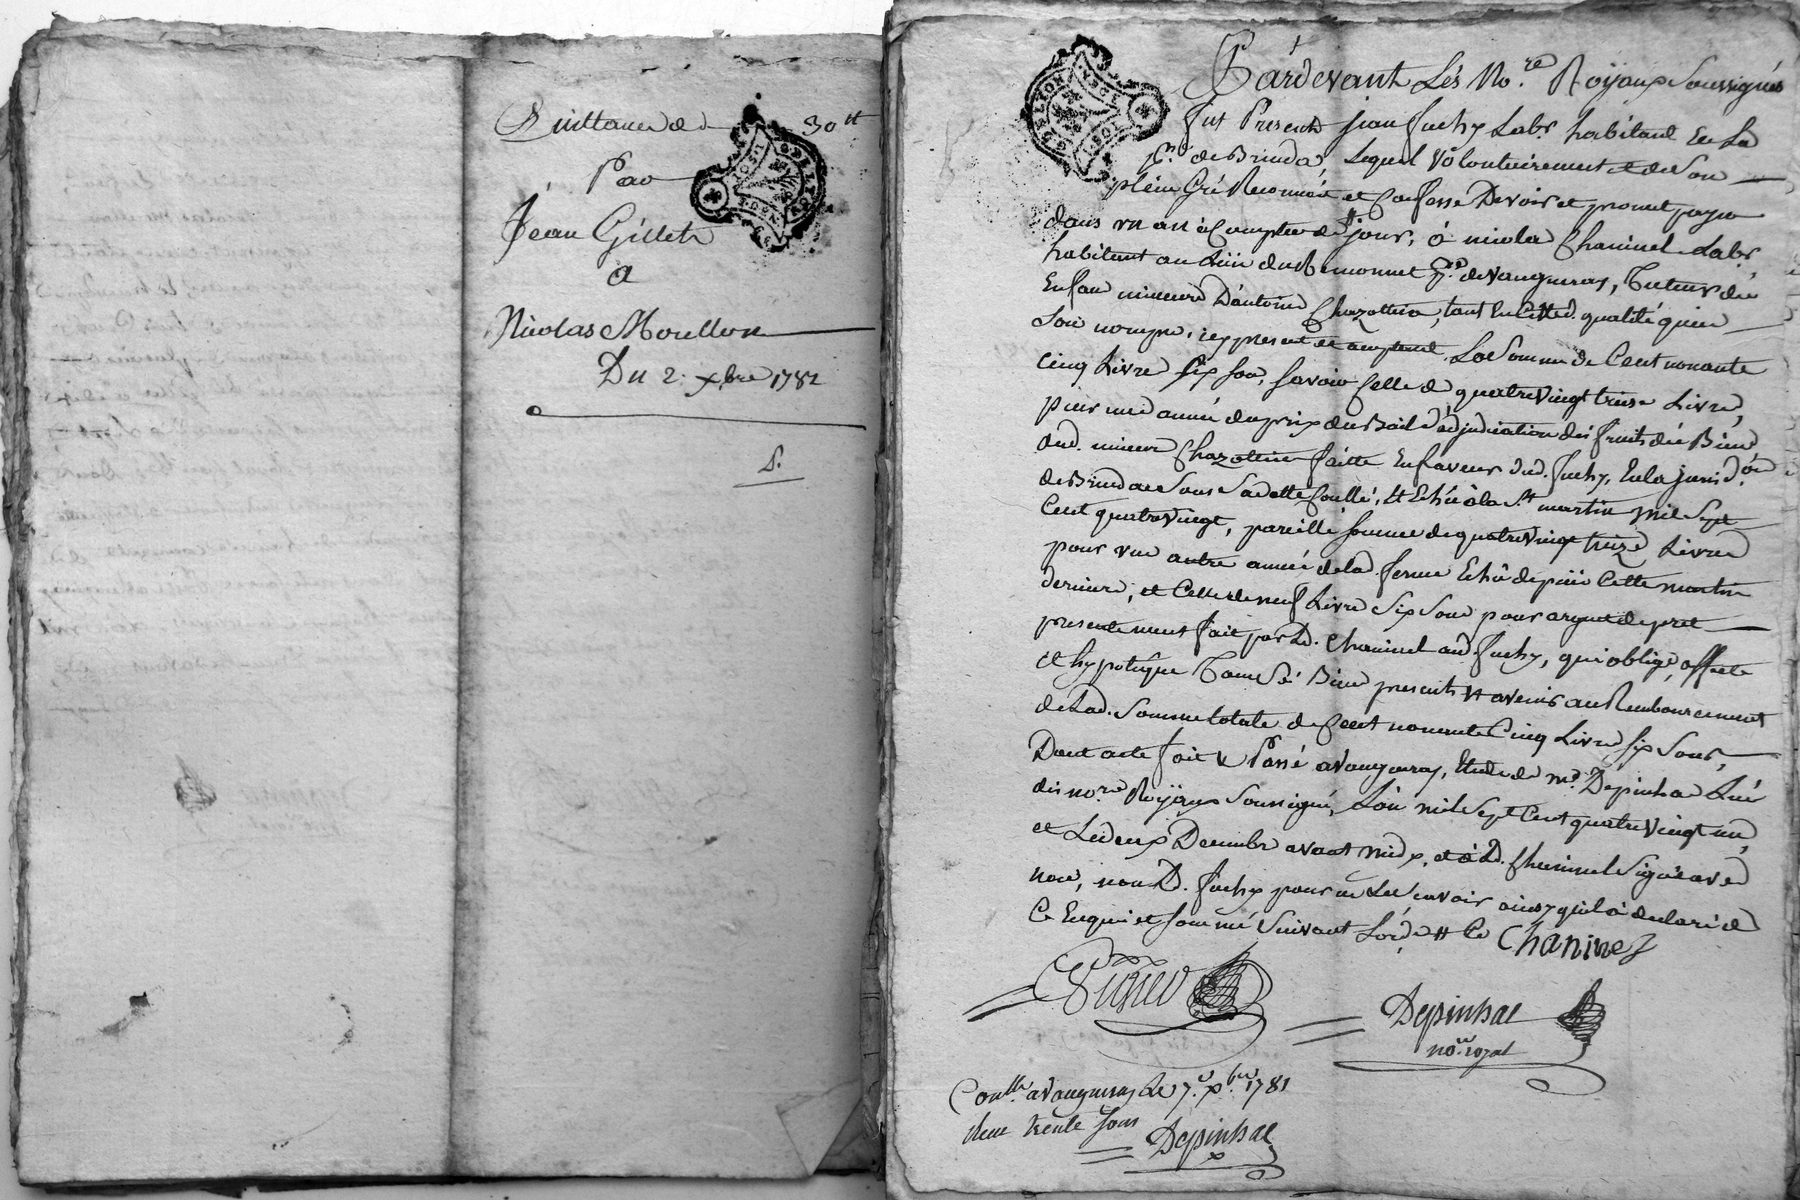 Quittance de 30 tt
Par
Jean Gillet
a
Nicolas Morellon
Du 2. xbre 1781
Pardevant Les No.re Royaux Soussignés
fut Present jean fuchy Labr habitant En La
p.se de Brinda, Lequel volontairement et de Son
plein Gré Reconnoit et Confesse Devoir et promet payer
dans un an à Compter de ce jour, à nicolas Chaninel Labr
habitant au Lieu du Remonnet p.se de vaugneray, Tuteur des
Enfan mineurs D'antoine Chazottier, tant En Cette d. qualité qu'en
Son nom pre, icy present et acceptant, La Somme de Cent nonante
Cinq Livre Six Sou, Savoir Celle de quatrevingt treise Livre,
pour une année du prix du Bail d'adjudication des fruits des Biens
aud. mineur Chazottier faitte En faveur dud. fuchy, En la jurid.on
de Brinda Sous Sa datte Conllé, Et Echüe à la S.t martin Mil Sept
Cent quatrevingt, pareille Somme de quatrevingt treize Livres
pour une autre année de lad. ferme Echü depuis Cette martin
derniere, et Celle de neuf Livre Six Sous pour argent de pret
presentement fait par Led. Chaninel aud. fuchy, qui oblige, affecte
et hypoteque Tous Ses Biens presents et avenir au Remboursement
de Lad. Somme totale de Cent nonante Cinq Livre Six Sous,
Dont acte fait et Passé a vaugneray, Etude de m.e Depinhac L'un
des no.re Royaux Soussigné, L'an mil Sept Cent quatrevingt un,
et Le deux Decembre avant midy, et à Led. Chaninel Signé avec
nous, non Led. fuchy pour ne Le Savoir ainsy qu'il a declaré de
Ce Enquis et Sommé Suivant L'ord.e
Chaninel
Depinhac
no.re royal
Conllé a vaugneray Le 7.e x.bre 1781
Reçu trente Sous
Depinhac